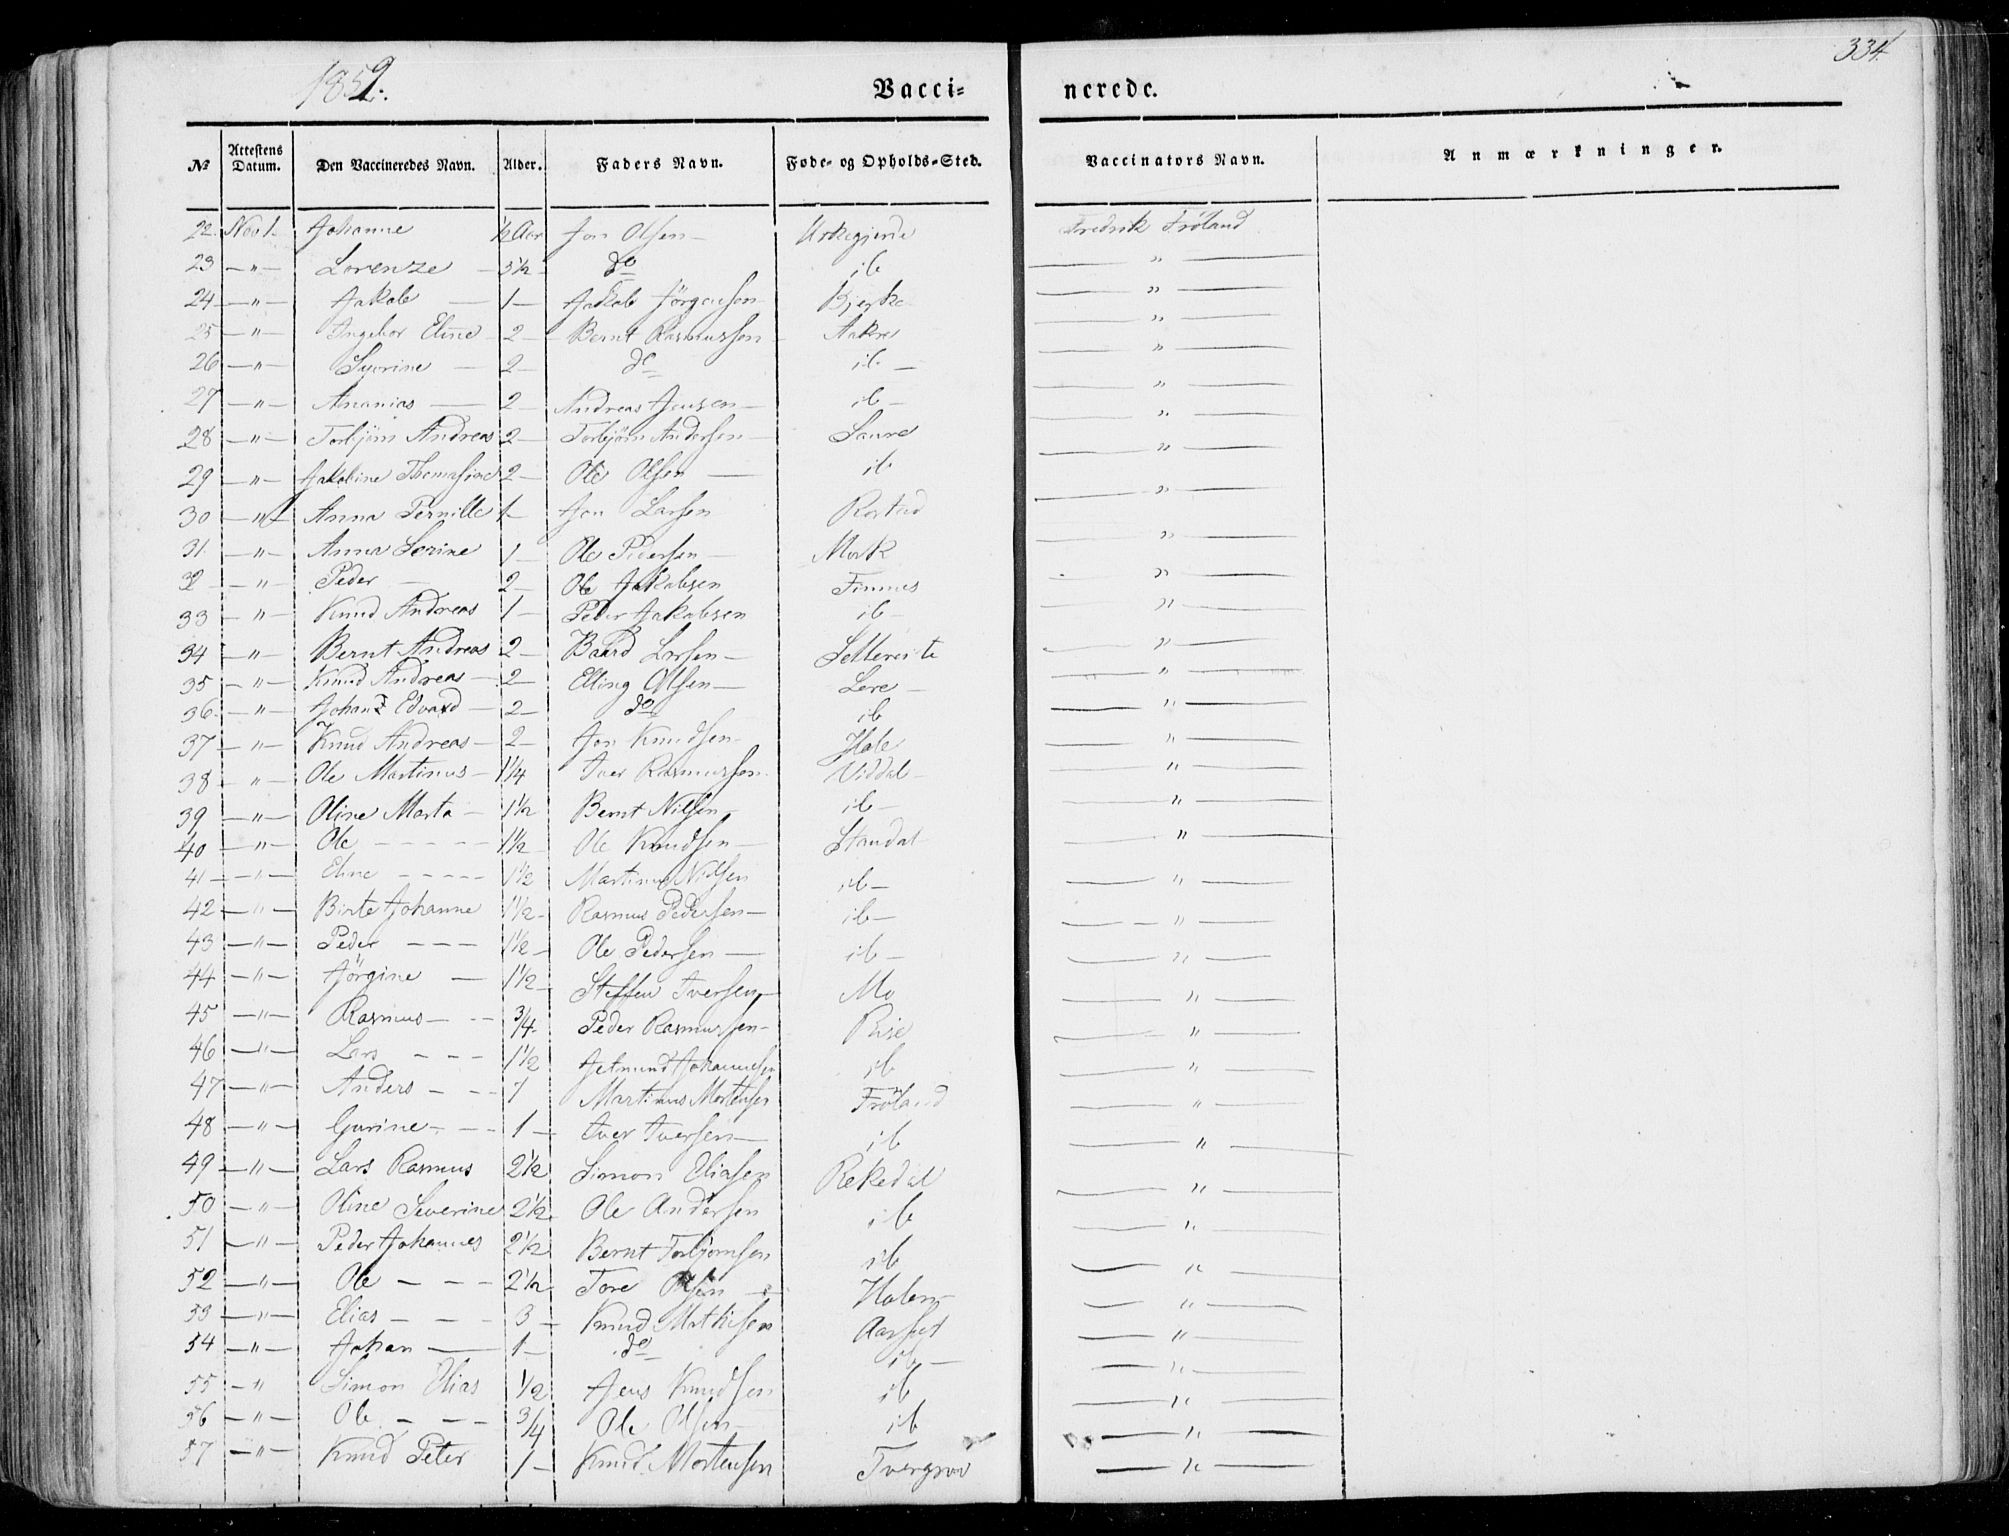 1852.
334
Vacci- nerede.
No Attestens Datum. Den Vaccineredes Navn. Alder. Faders Navn. Føde- og Opholds-Sted. Vaccinators Navn. Anmærkninger.
22 Nov 1. Johanne ½ Aar Jon Olsen Urkegjerde Fredrik Fröland
23 — " — Lorenze 3½ do ib "
24 — " — Jakob 1 Jakob Jörgensen Bjerke "
25 — " — Ingebor Eline 2 Bernt Rasmussen Aakre "
26 — " — Syvrine 2 do ib "
27 — " — Ananias 2 Andreas Jensen ib "
28 — " — Torbjörn Andreas 2 Torbjörn Andersen Saure "
29 — " — Jakobine Thomasine 2 Ole Olsen ib "
30 — " — Anna Pernille 1 Jon Larsen Rostad "
31 — " — Anna Serine 1 Ole Pedersen Mork "
32 — " — Peder 2 Ole Jakobsen Finnes "
33 — " — Knud Andreas 1 Peder Jakobsen ib "
34 — " — Bernt Andreas 2 Baard Larsen "
35 — " — Knud Andreas 2 Elling Olsen Lere "
36 — " — Johan Edvard 2 do ib "
37 — " — Knud Andreas 2 Jon Knudsen Hole "
38 — " — Ole Martinus 1¼ Iver Rasmussen Viddal "
39 — " — Oline Marta 1½ Bernt Nilsen ib "
40 — " — Ole 1½ Ole Knudsen Standal "
41 — " — Eline 1½ Martinus Nilsen ib "
42 — " — Birte Johanne 1½ Rasmus Pedersen ib "
43 — " — Peder 1½ Ole Pedersen ib "
44 — " — Jörgine 1½ Steffen Iversen Mo "
45 — " — Rasmus ¾ Peder Rasmussen Rise "
46 — " — Lars 1½ Jetmund Johannesen ib "
47 — " — Anders 1 Martinus Mortensen Fröland "
48 — " — Gurine 1 Iver Iversen ib "
49 — " — Lars Rasmus 2½ Simon Eliasen Rekedal "
50 — " — Oline Severine 2½ Ole Andersen ib "
51 — " — Peder Johannes 2½ Bernt Torbjörnsen ib "
52 — " — Ole 2½ Tore Olsen Holen "
53 — " — Elias 3 Knud Mathisen Aarset "
54 — " — Johan 1 do ib "
55 — " Simon Elias ½ Jens Knudsen ib "
56 — " — Ole ¾ Ole Olsen ib "
57 — " — Knud Peter 1 Knud Mortensen Tvergrov "